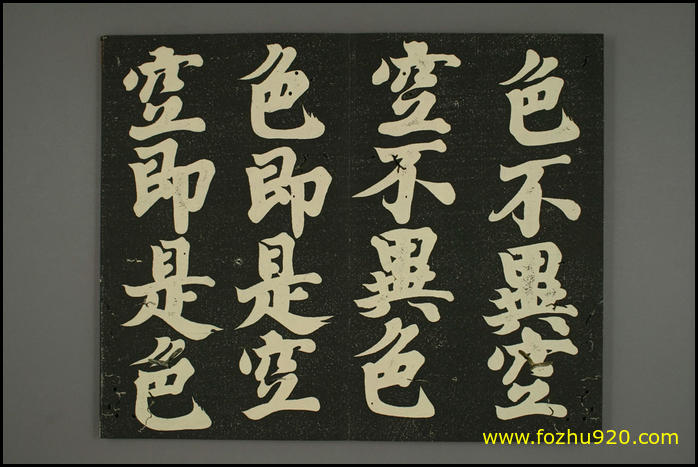 色不異空
空不異色
色即是空
空即是色
www.fozhu920.com